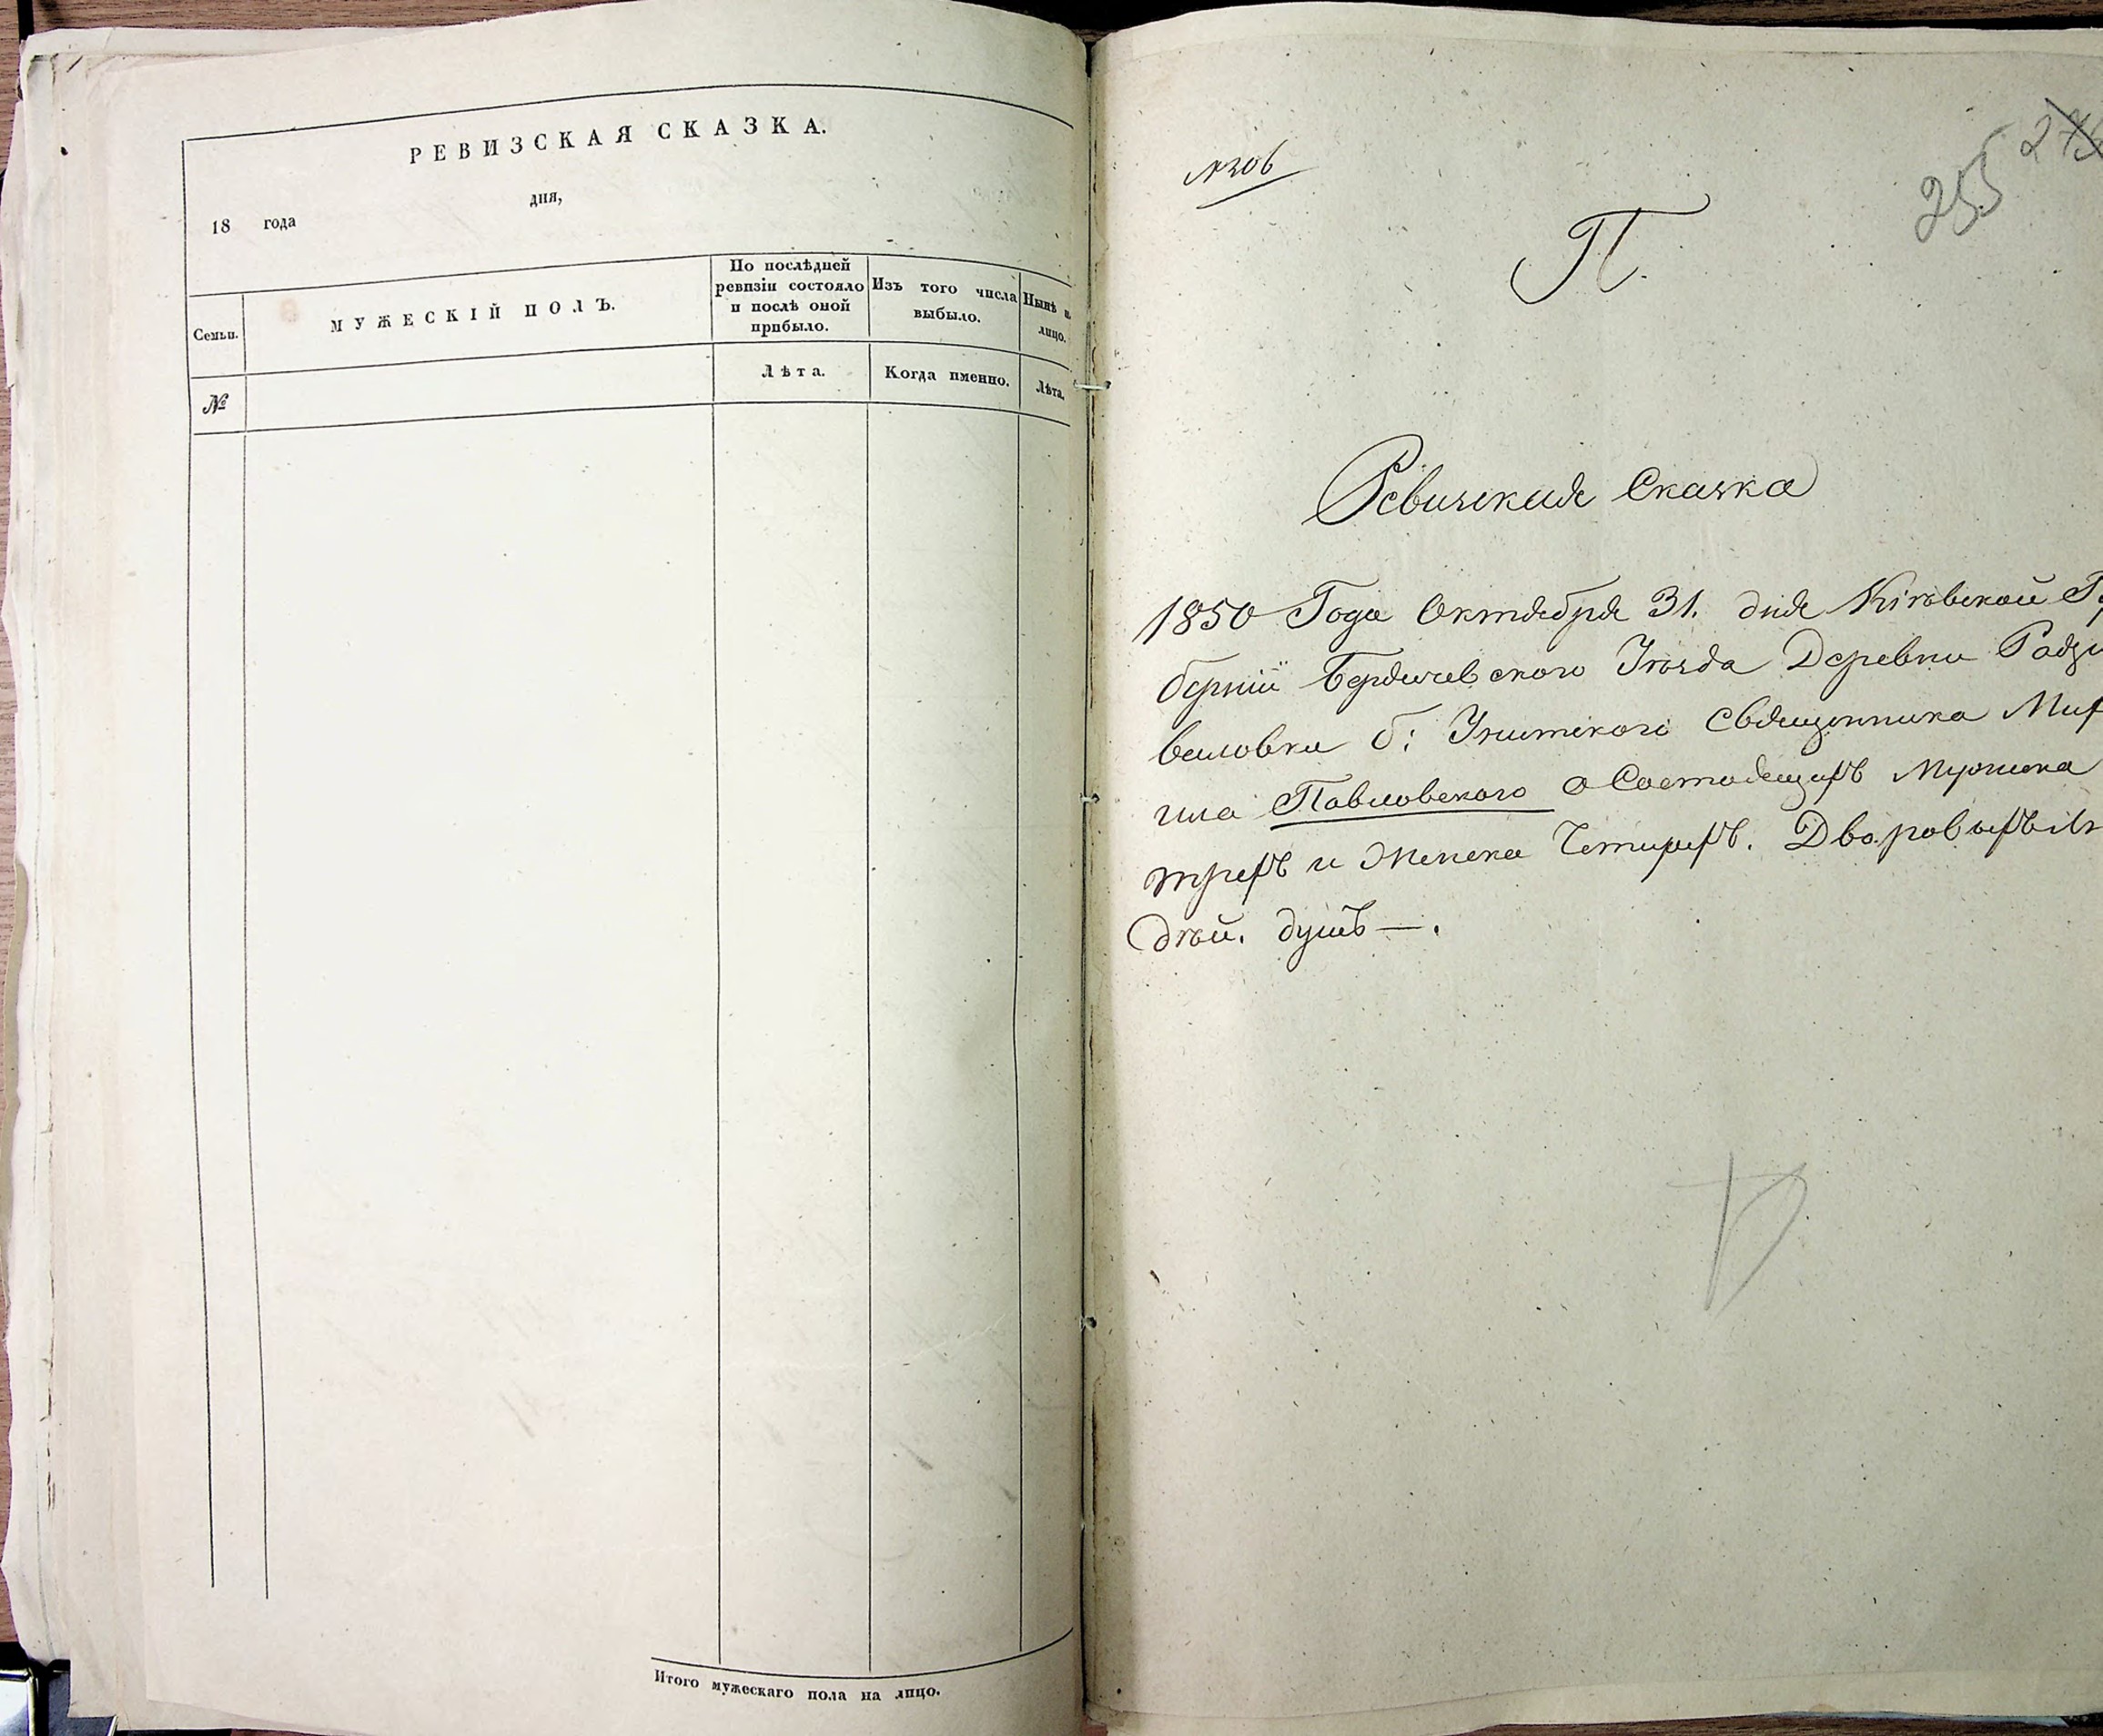 РЕВИЗСКАЯ СКАЗКА.
18 года дня,
Семьи.
МУЖЕСКІЙ ПОЛЪ.
По послѣдней
ревизіи состояло
и послѣ оной
прибыло.
Изъ того числа
выбыло.
Нынѣ н.
лицо.
№
Лѣта.
Когда именно.
Лѣта.
Итого мужескаго пола на лицо.
№306
255
П.
Ревизская Сказка
1850 Года Октября 31. дня Кіевской Гу
берніи Бердичевского Уѣзда Деревни Радзи
виловки б: Уніатского Священника Мих
Павловского о Состоящихъ Мужска
трехъ и Женска Четырехъ. Дворовыхъ
душъ —.